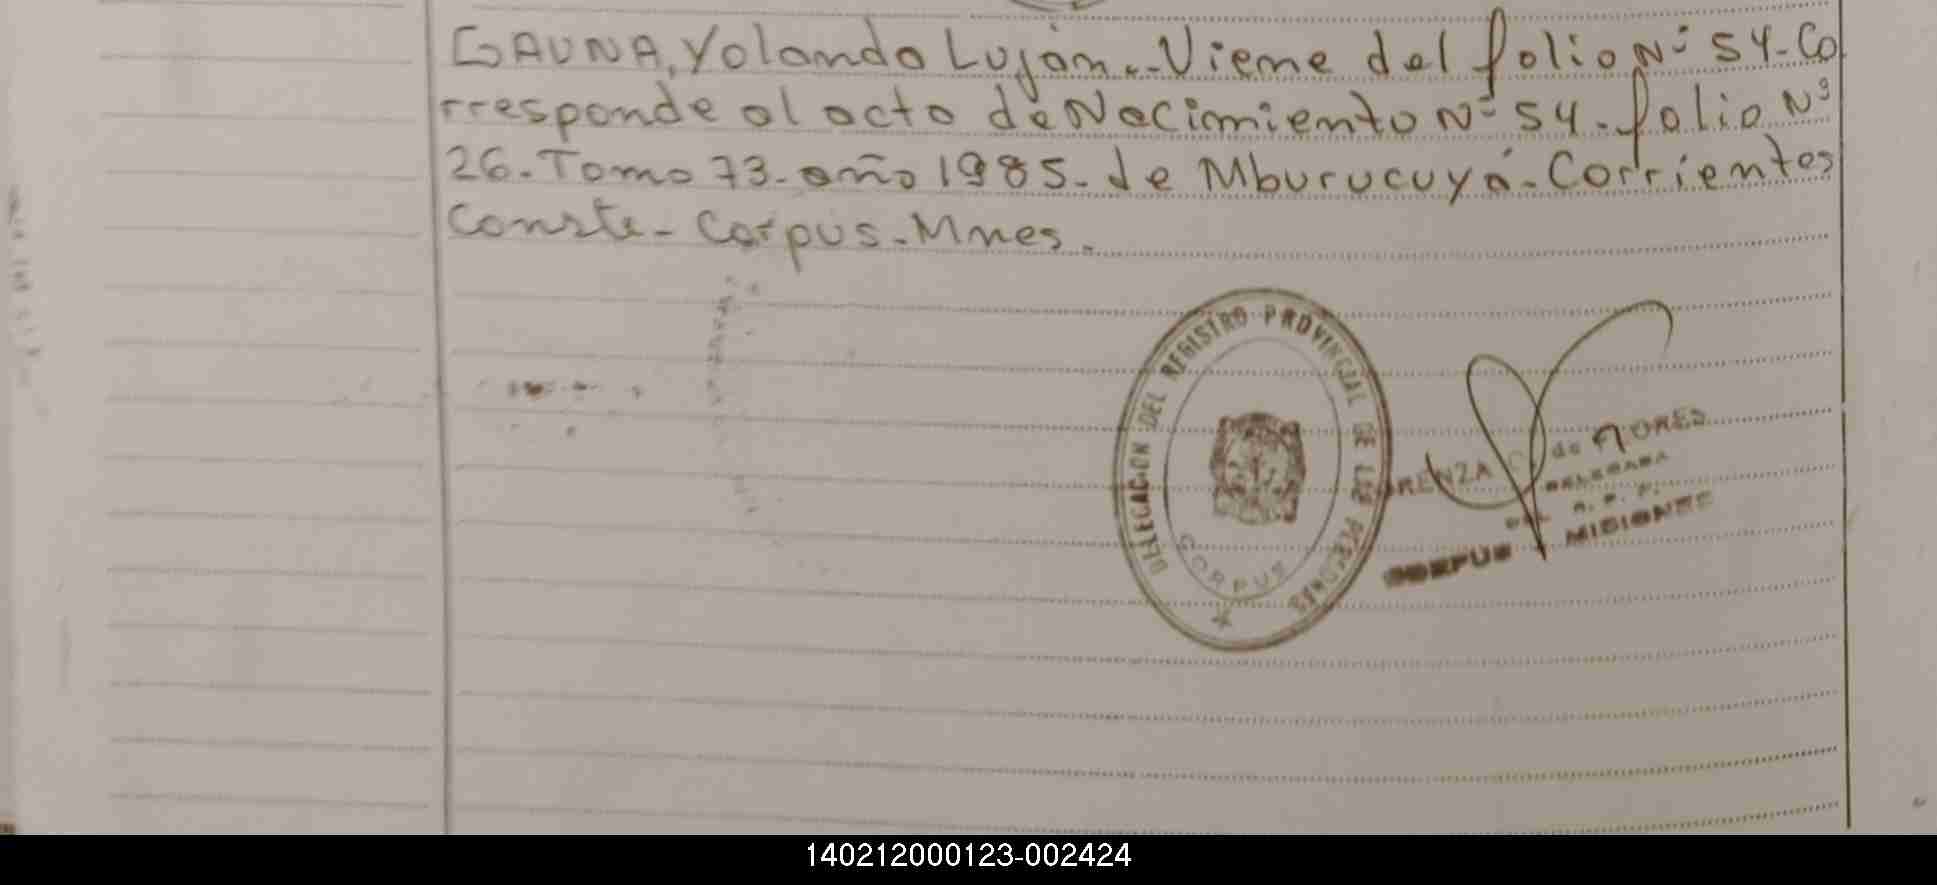 GAUNA, Yolanda Luján.- Viene del folio Nº 54-Co
rresponde al acta de Nacimiento Nº 54. folio Nº
26. Tomo 73- año 1985. de Mburucuyá- Corrientes
Conste- Corpus. Mnes.
DELEGACION DEL REGISTRO PROVINCIAL DE LAS PERSONAS
CORPUS
de FLORES
DELEGADA
CORPUS MISIONES
140212000123-002424